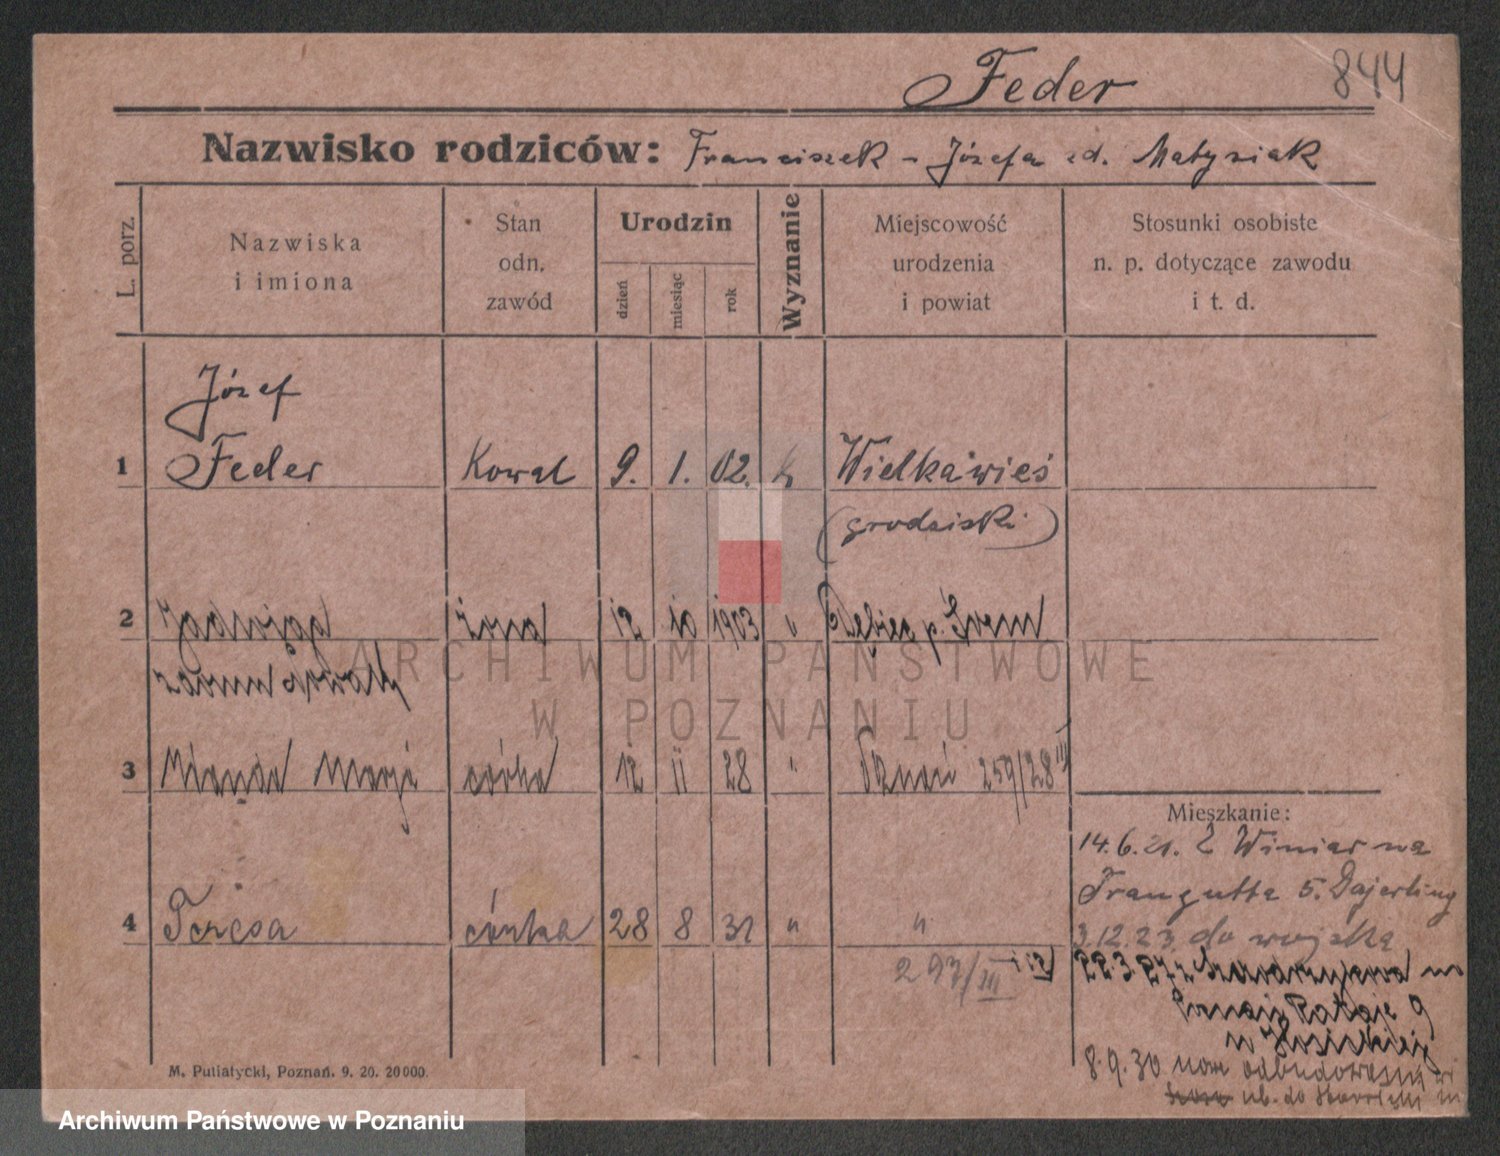 Feder
844
Nazwisko rodziców: Franciszek - Józefa zd. Matysiak
L. porz.
Nazwiska
i imiona
Stan
odn.
zawód
Urodzin
dzień
miesiąc
rok
Wyznanie
Miejscowość
urodzenia
i powiat
Stosunki osobiste
n. p. dotyczące zawodu
i t. d.
Józef
1 Feder Kowal 9. 1. 02. k Wielkawieś
(grodziski)
2 Jadwiga żona 12 10 1903 " Dębiec p. Śrem
3 Wanda Marja córka 12 11 28 " Poznań 259/28 III
4 Teresa córka 28 8 31 " "
297/III
Mieszkanie:
14.6.21. Z Winiar na
Traugutta 5.
3.12.23. do wojska
22.3.27 z
Poznań Rataje 9
w
8.9.30
M. Putiatycki, Poznań. 9. 20. 20000.
ARCHIWUM PAŃSTWOWE
W POZNANIU
Archiwum Państwowe w Poznaniu